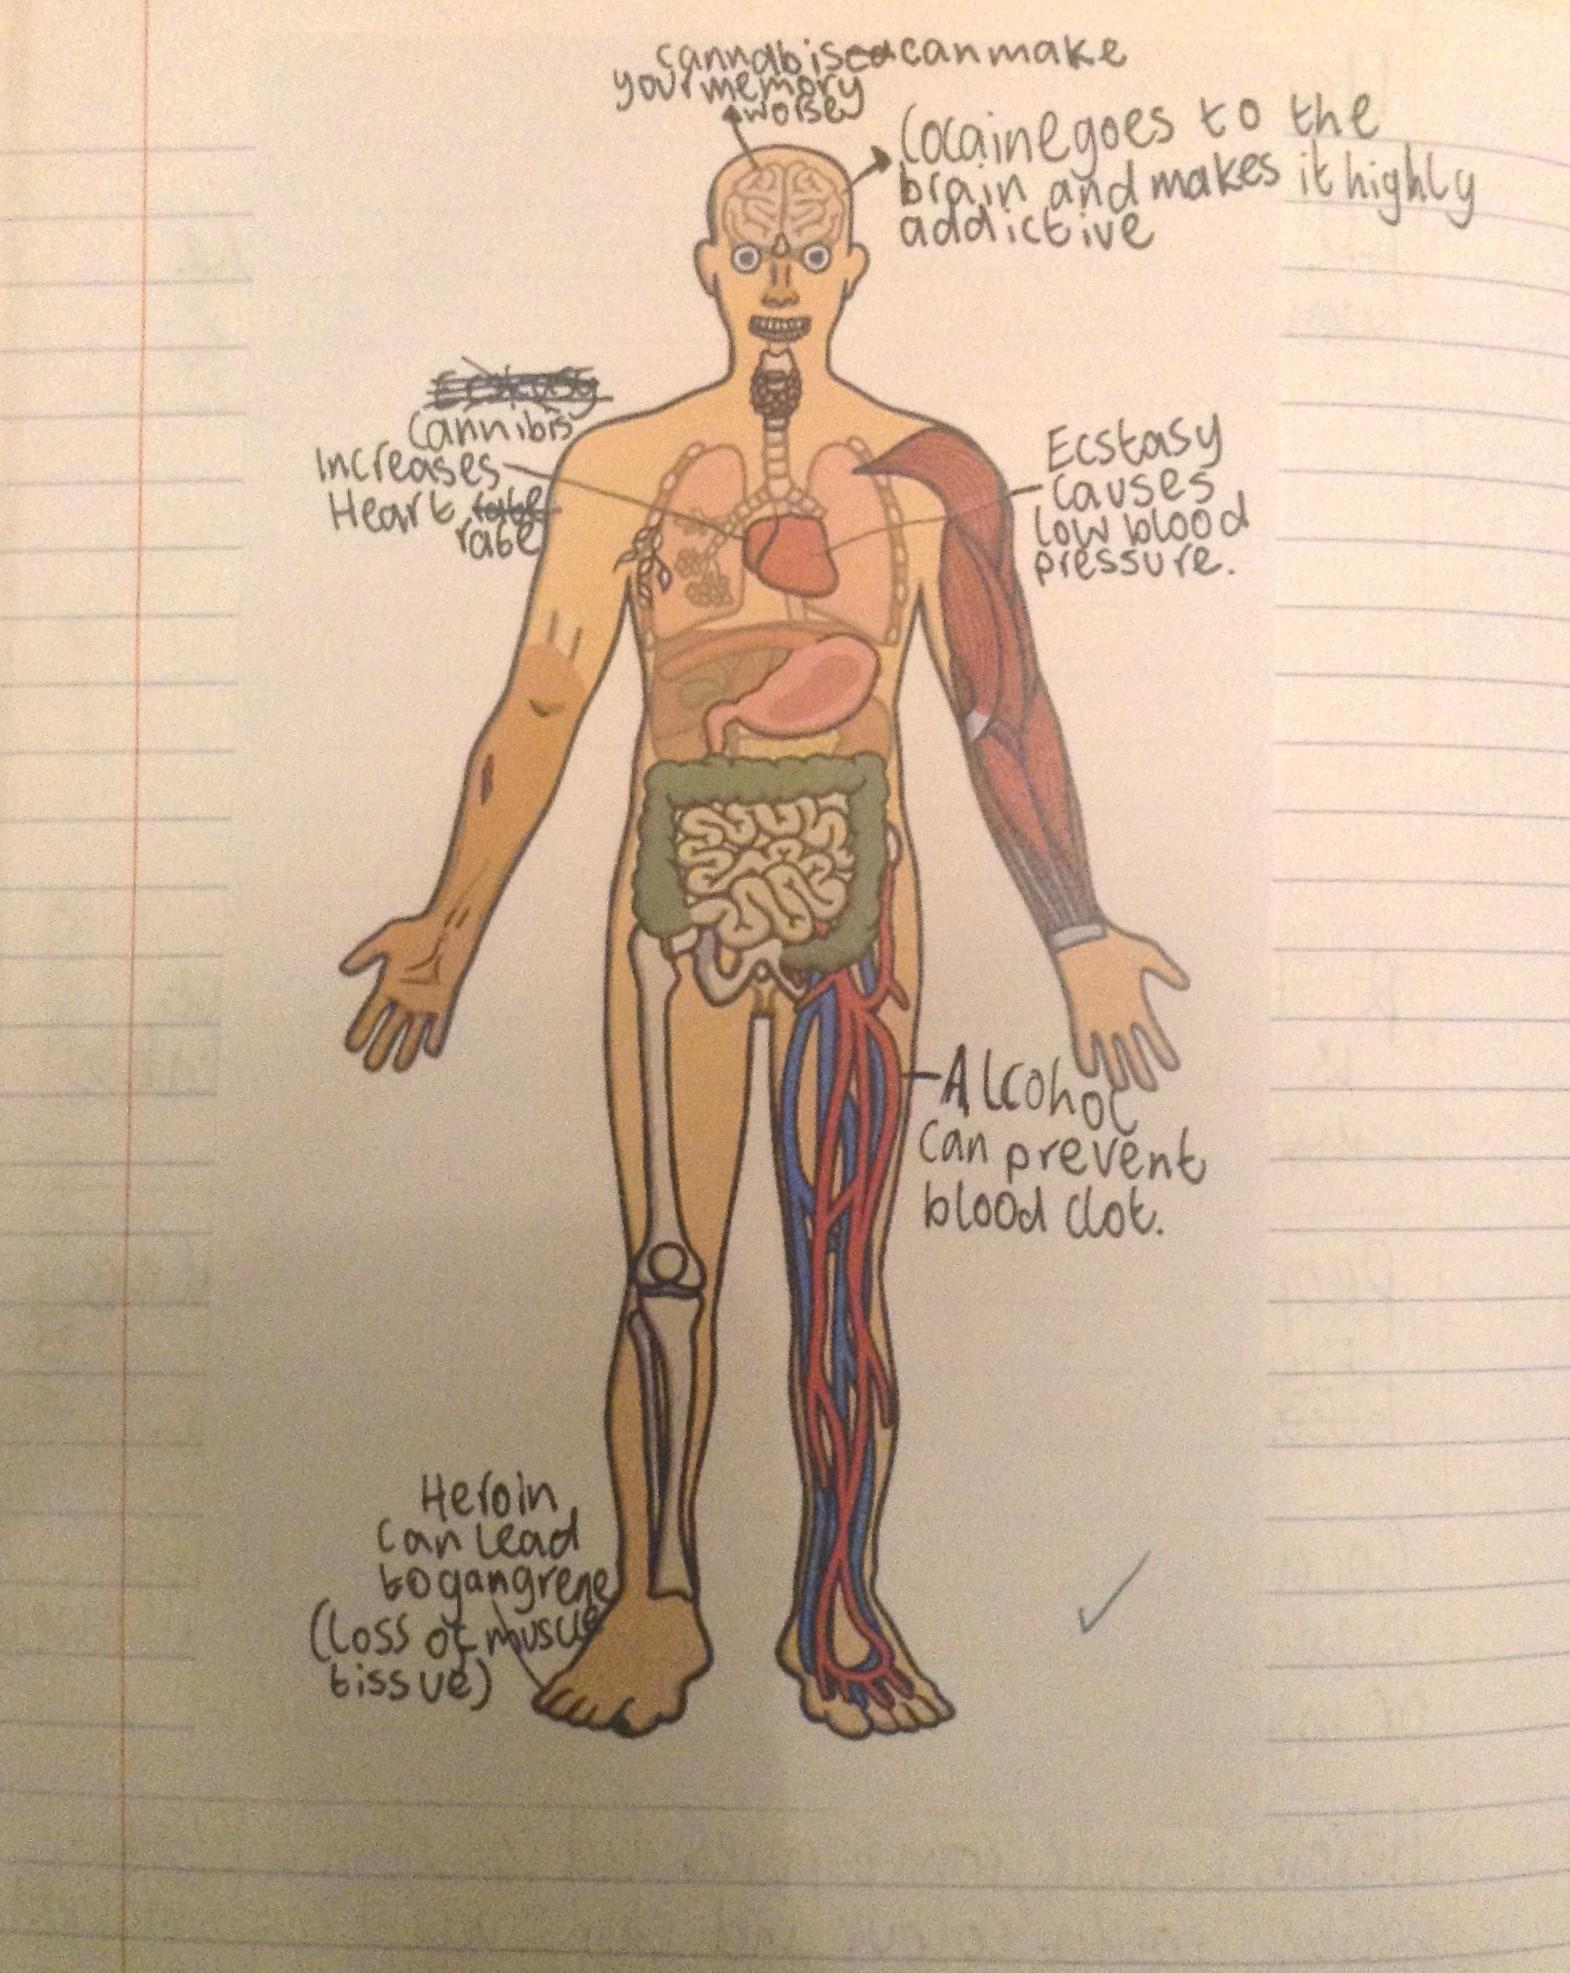 cannabis can make
your memory
worse
Cocaine goes to the
brain and makes it highly
addictive
Cannibis
Increases
Heart
rate
Ecstasy
causes
low blood
pressure.
Alcohol
can prevent
blood clot.
Heroin
can lead
to gangrene
(loss of muscle
tissue)